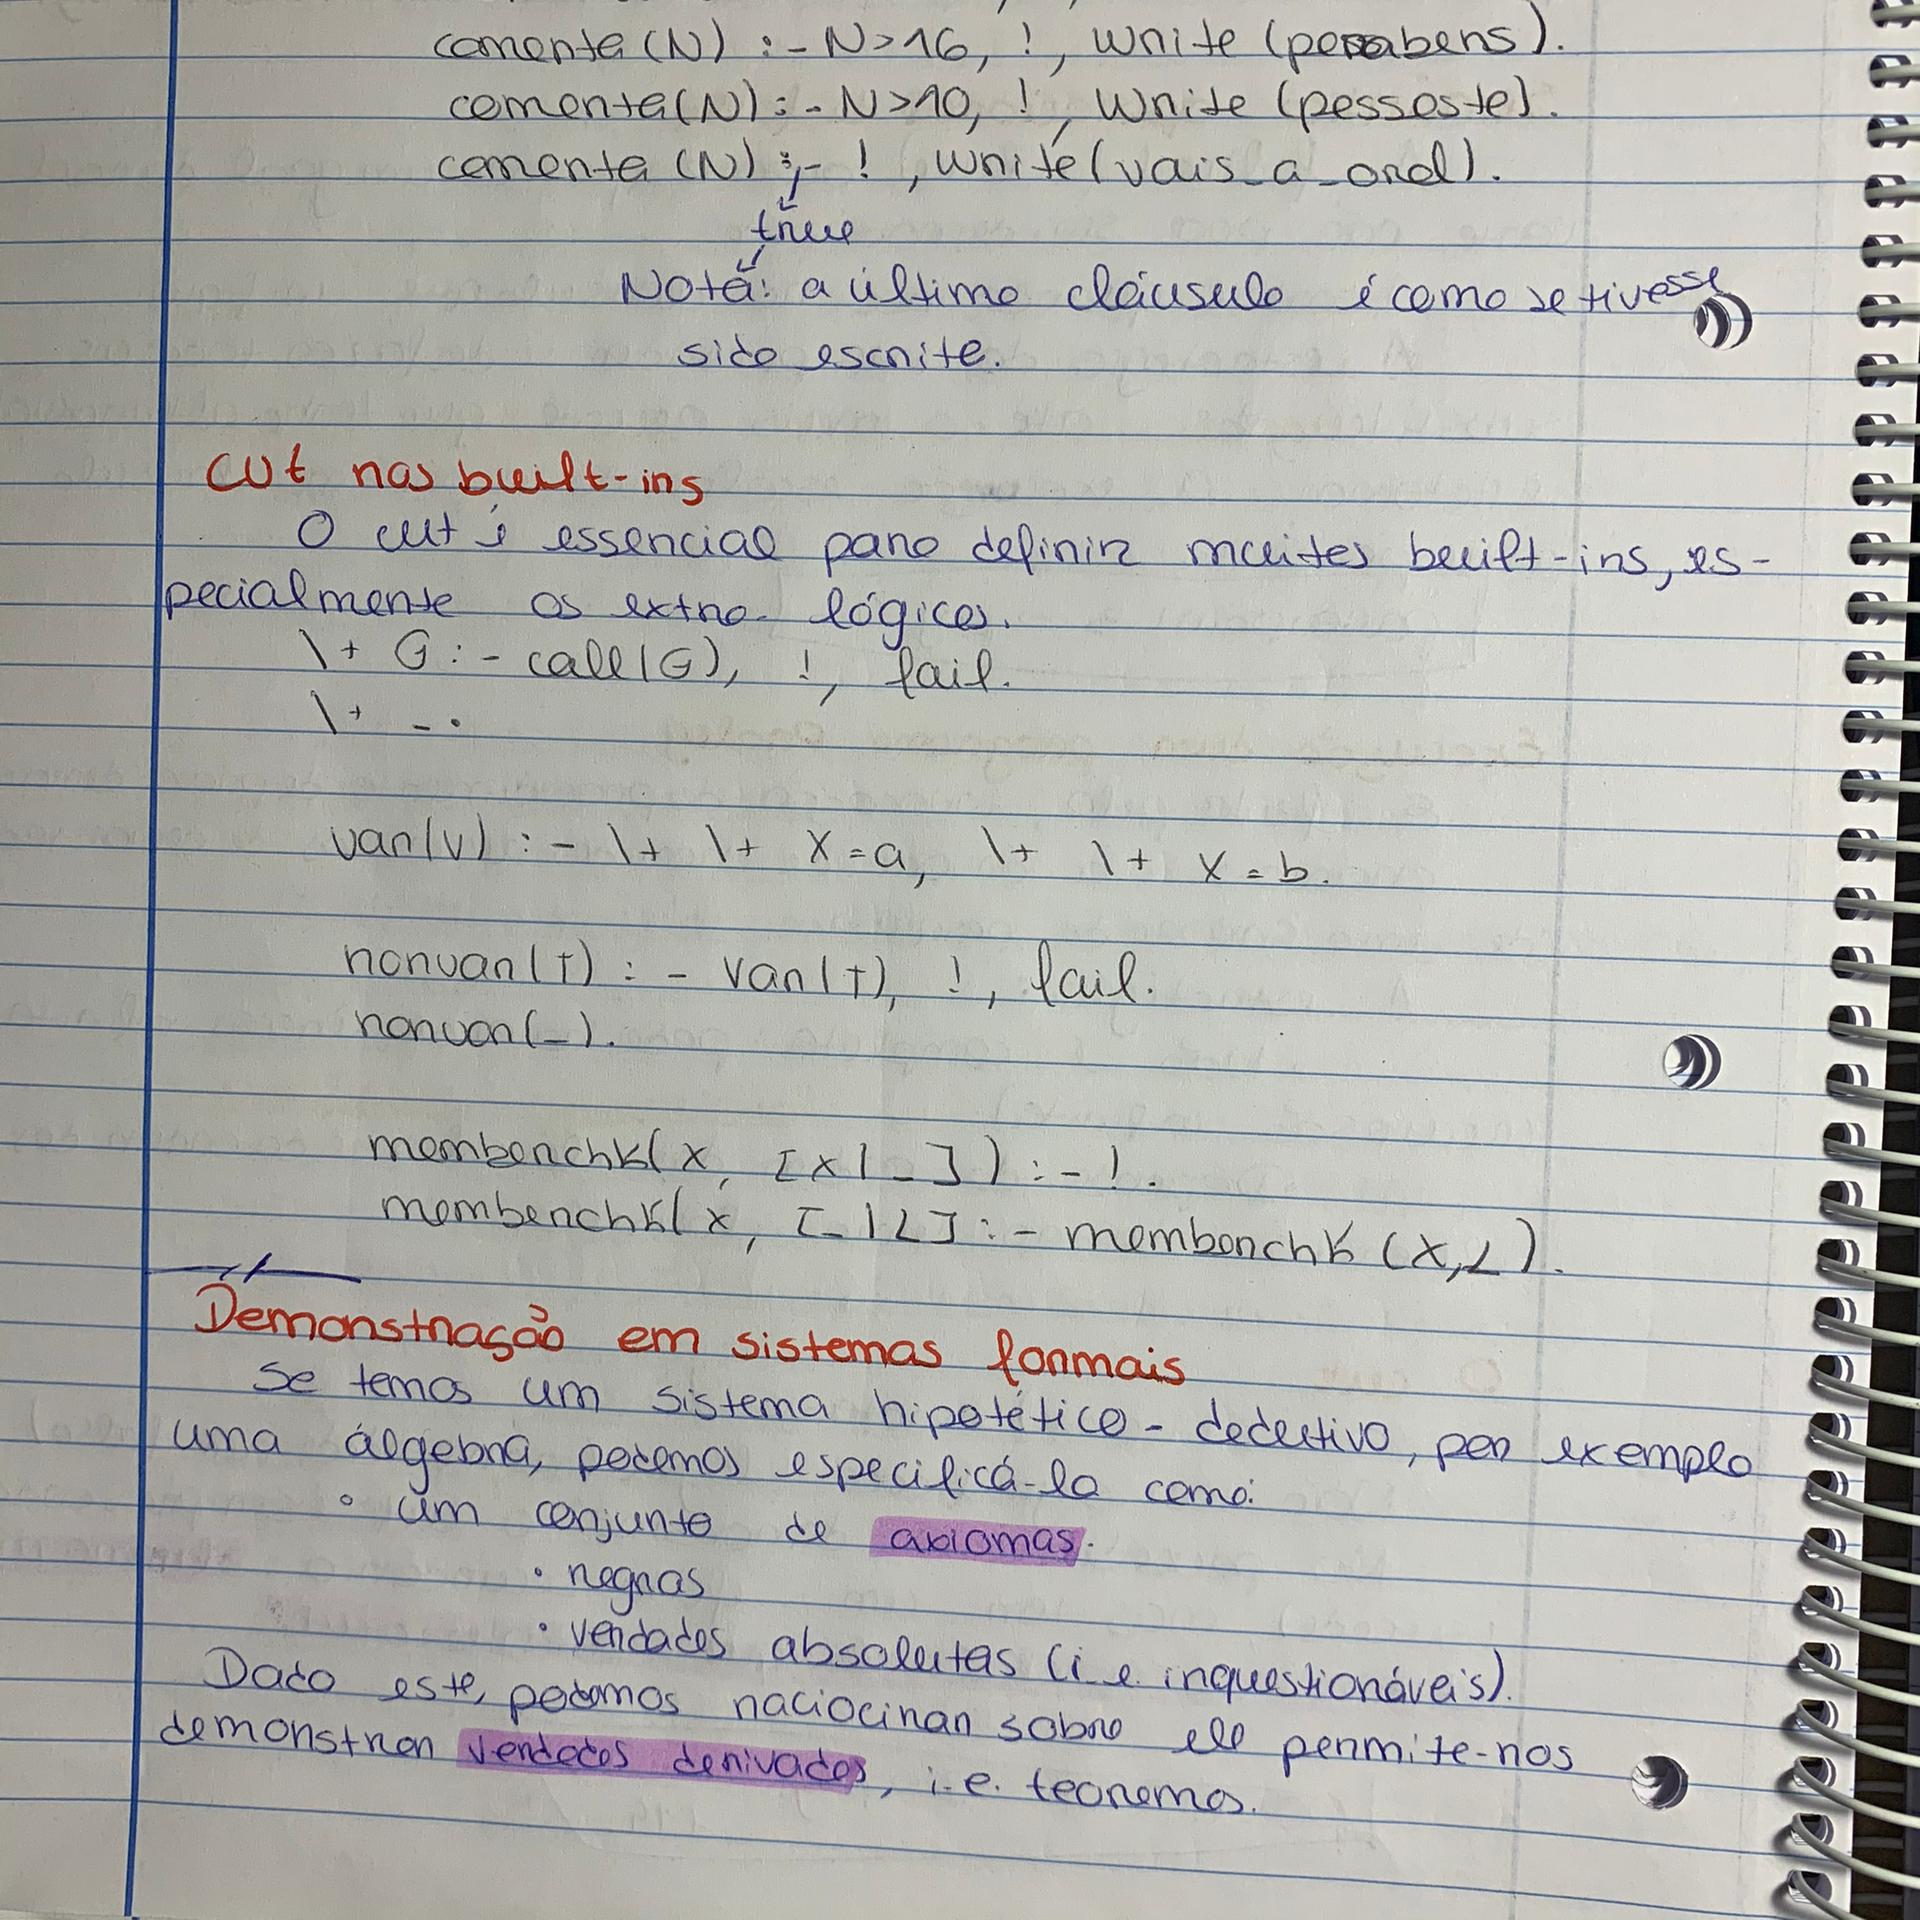 comenta(N) :- N>16, !, write (parabens).
comenta(N) :- N>10, !, write (passaste).
comenta (N) :- !, write(vais_a_oral).
true
Nota: a última cláusula é como se tivesse
sido escrita.
Cut nos built-ins
O cut é essencial para definir muitos built-ins, es-
pecialmente os extra-lógicos.
\+ G :- call(G), !, fail.
\+ _.
var(V) :- \+ \+ X=a, \+ \+ X=b.
nonvar(T) :- var(T), !, fail.
nonvar(_).
memberchk(X, [X|_]) :- !.
memberchk(X, [_|L] :- memberchk (X,L).
Demonstração em sistemas formais
Se temos um sistema hipotético-dedutivo, por exemplo
uma álgebra, podemos especificá-la como:
• um conjunto de axiomas.
• regras
• verdades absolutas (i.e. inquestionáveis).
Dado este, podemos raciocinar sobre ele permite-nos
demonstrar verdades derivadas, i.e. teoremas.